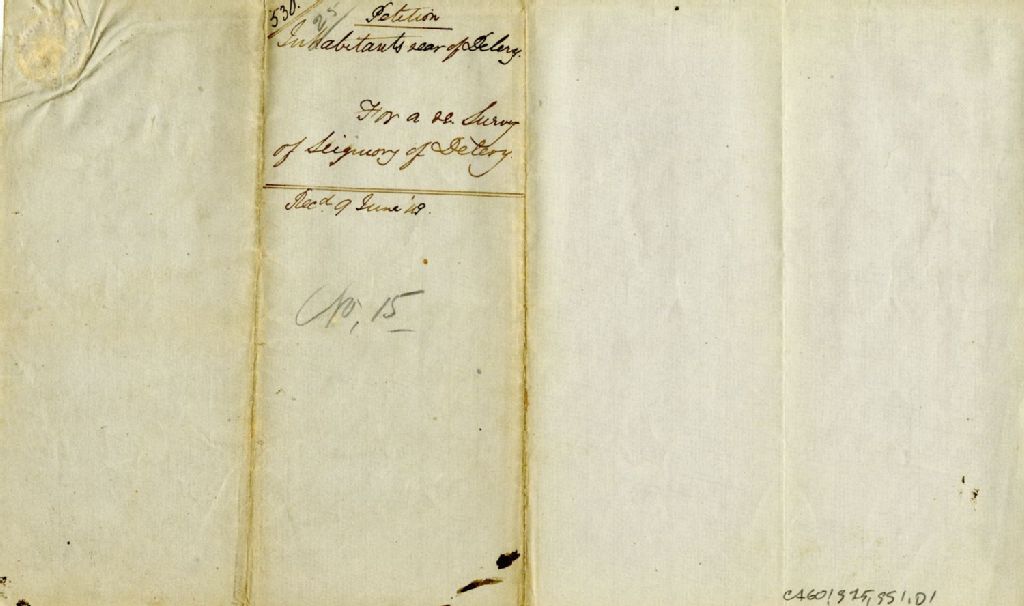 530.
25
Petition
Inhabitants rear of Delery.
For a re. Survey
of Seignory of Delery.
Recd. 9 June '48.
No, 15
CA601,S25,SS1,D1